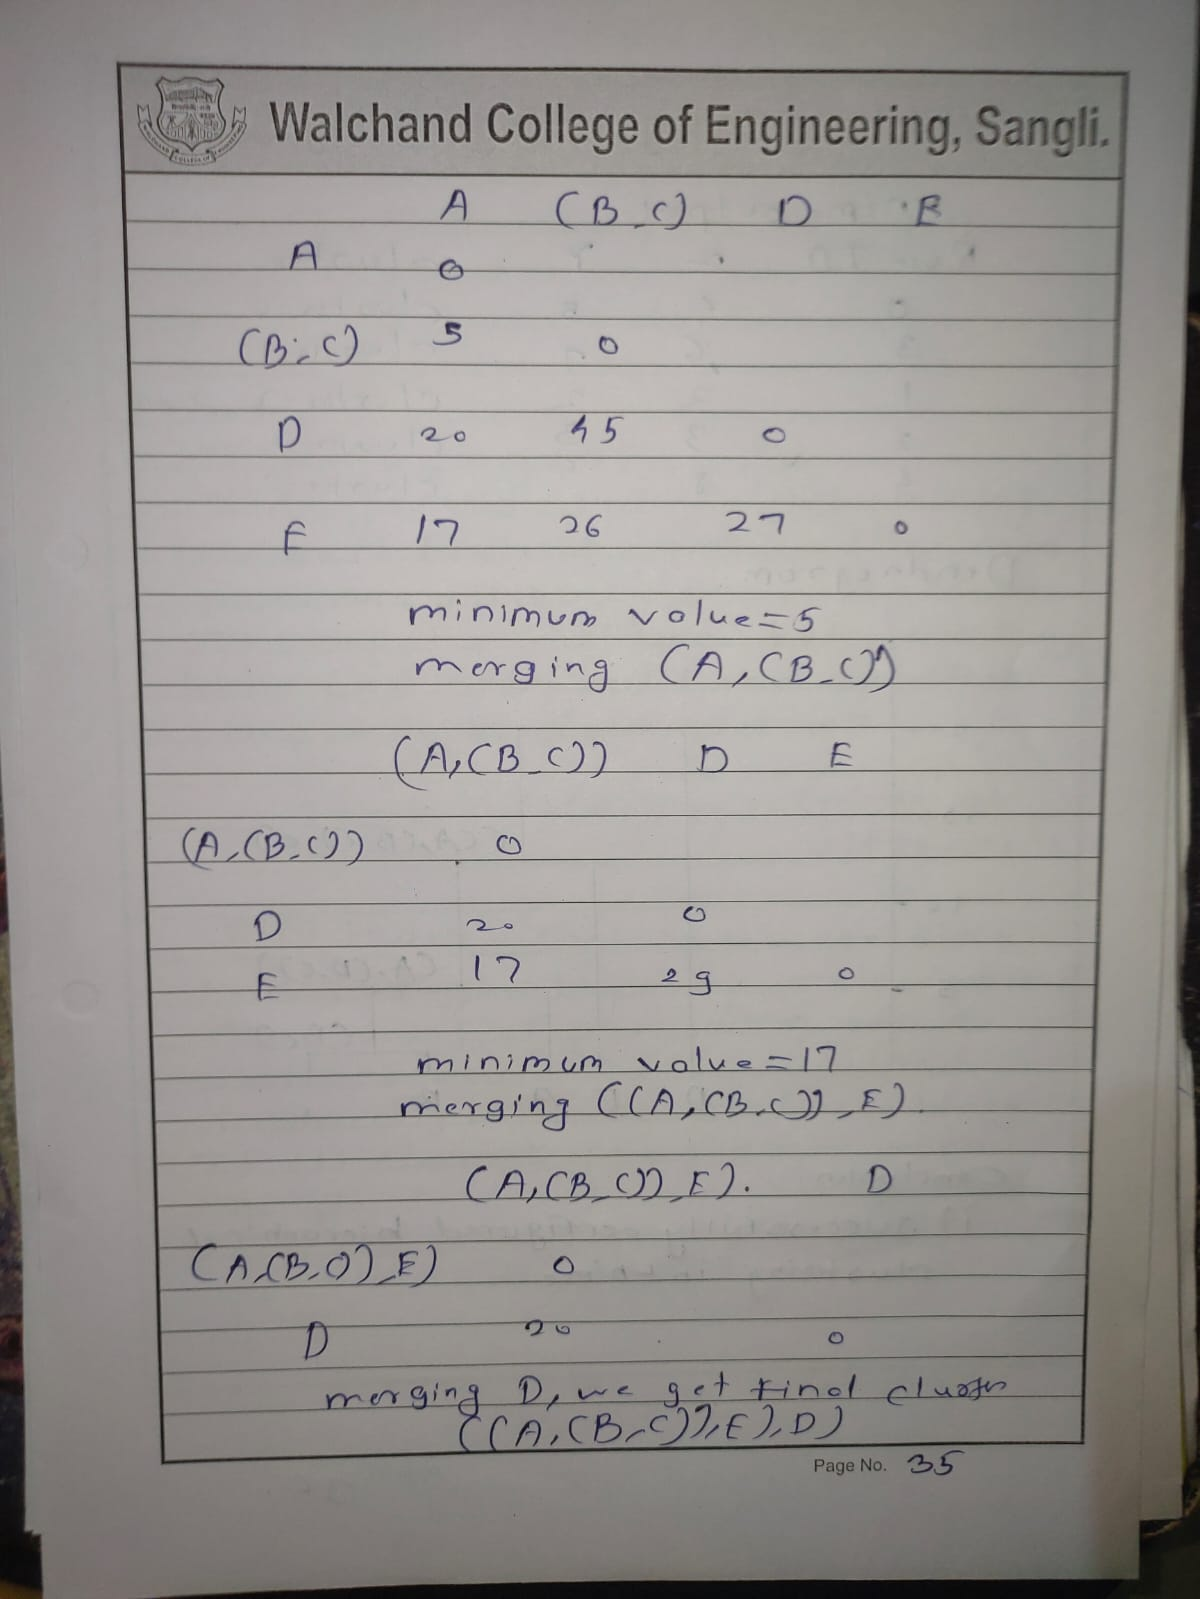 Walchand College of Engineering, Sangli.
A (B,C) D E
A 0
(B,C) 5 0
D 20 45 0
E 17 26 27 0
minimum value=5
merging (A,(B,C))
(A,(B,C)) D E
(A,(B,C)) 0
D 20 0
E 17 29 0
minimum value=17
merging ((A,(B,C)),E).
(A,(B,C)),E). D
(A,(B,C)),E) 0
D 20 0
merging D, we get final cluster
((A,(B,C)),E),D)
Page No. 35